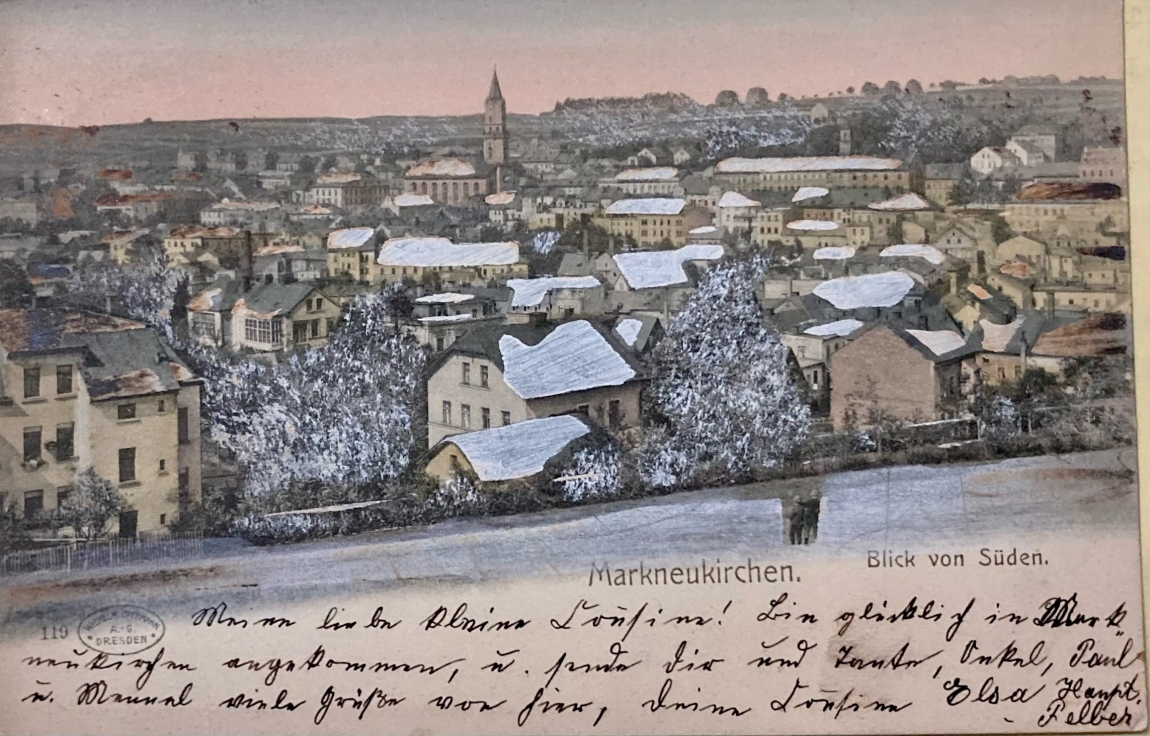 Markneukirchen.
Blick von Süden.
119
A.-G.
DRESDEN
Meine liebe kleine Cousine! Bin glücklich in Mark
neukirchen angekommen, u. sende dir und Tante, Onkel, Paul
u. viele Grüße von hier, deine Cousine Elsa Haupt.
Felber